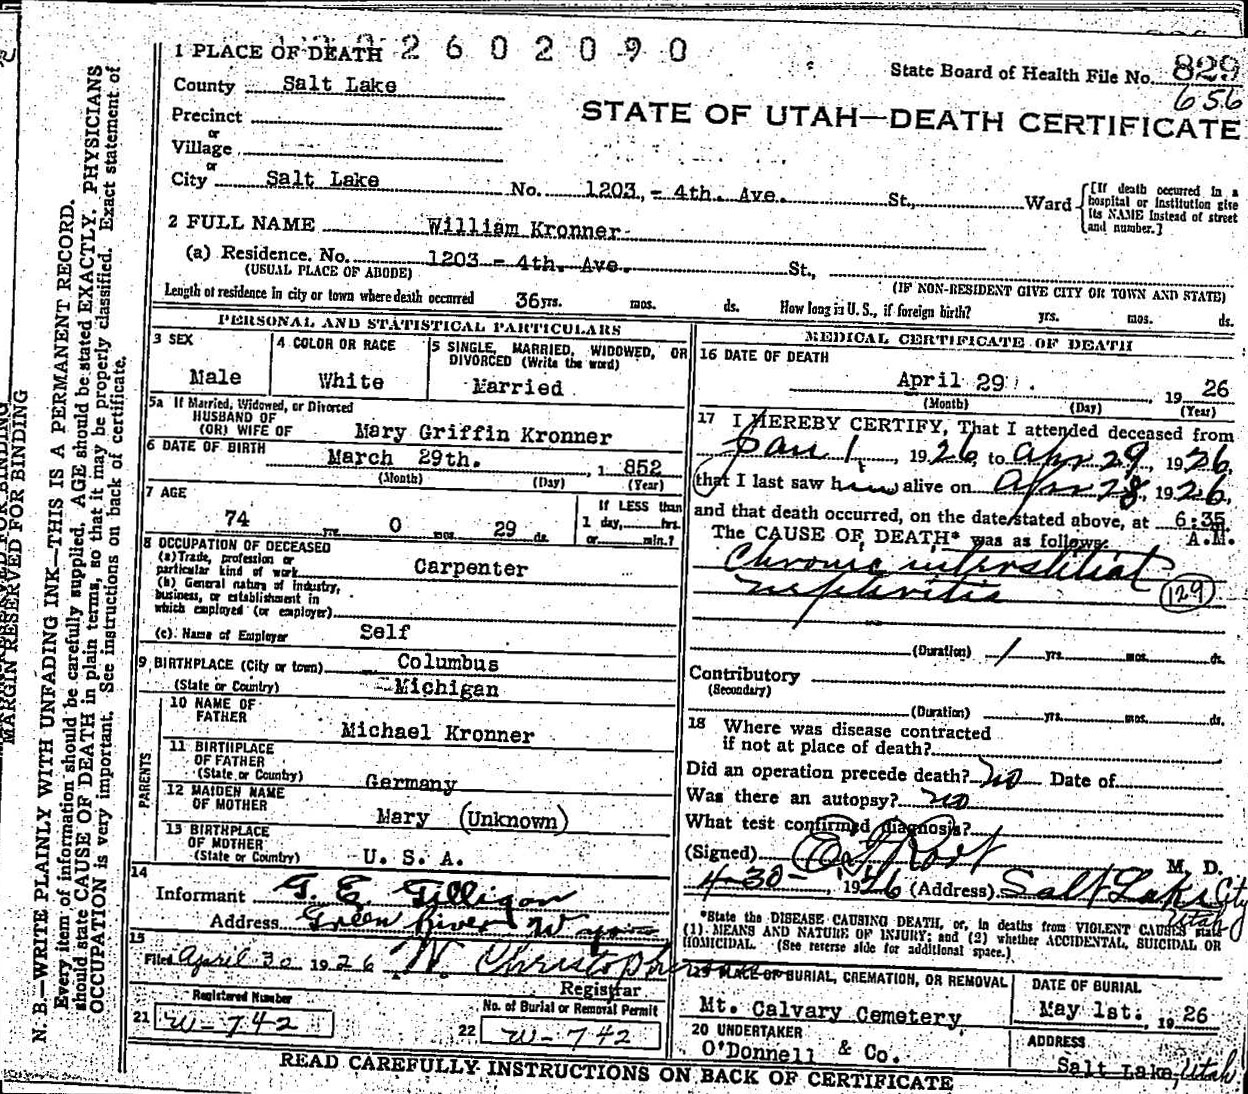 2602090
1 PLACE OF DEATH
State Board of Health File No. 829
656
County Salt Lake
STATE OF UTAH—DEATH CERTIFICATE
Precinct
or
Village
or
City Salt Lake No. 1203 - 4th. Ave. St., Ward [If death occurred in a hospital or institution give its NAME instead of street and number.]
2 FULL NAME William Kronner
(a) Residence. No. 1203 - 4th. Ave. St.,
(USUAL PLACE OF ABODE) (IF NON-RESIDENT GIVE CITY OR TOWN AND STATE)
Length of residence in city or town where death occurred 36 yrs. mos. ds. How long in U. S., if foreign birth? yrs. mos. ds.
PERSONAL AND STATISTICAL PARTICULARS
3 SEX
Male
4 COLOR OR RACE
White
5 SINGLE, MARRIED, WIDOWED, OR
DIVORCED (Write the word)
Married
5a If Married, Widowed, or Divorced
HUSBAND OF
(OR) WIFE OF Mary Griffin Kronner
6 DATE OF BIRTH March 29th. , 1 852
(Month) (Day) (Year)
7 AGE
74 yrs. 0 mos. 29 ds.
If LESS than
1 day, hrs.
or min.?
8 OCCUPATION OF DECEASED
(a) Trade, profession or
particular kind of work Carpenter
(b) General nature of industry,
business, or establishment in
which employed (or employer)
(c) Name of Employer Self
9 BIRTHPLACE (City or town) Columbus
(State or Country) Michigan
PARENTS
10 NAME OF
FATHER Michael Kronner
11 BIRTHPLACE
OF FATHER
(State or Country) Germany
12 MAIDEN NAME
OF MOTHER Mary (Unknown)
13 BIRTHPLACE
OF MOTHER
(State or Country) U. S. A.
14
Informant T. E. Gilligan
Address Green River Wyo
15
Filed April 30 1926 W Christopherson
Registrar
Registered Number
21 W-742
No. of Burial or Removal Permit
22 W-742
MEDICAL CERTIFICATE OF DEATH
16 DATE OF DEATH
April 29 . 19 26
(Month) (Day) (Year)
17 I HEREBY CERTIFY, That I attended deceased from
Jan 1, 1926, to Apr 29, 1926,
that I last saw him alive on Apr 28, 1926,
and that death occurred, on the date stated above, at 6:35
A.M.
The CAUSE OF DEATH* was as follows:
Chronic interstitial
nephritis (129)
(Duration) 1 yrs. mos. ds.
Contributory
(Secondary)
(Duration) yrs. mos. ds.
18 Where was disease contracted
if not at place of death?
Did an operation precede death? no Date of
Was there an autopsy? no
What test confirmed diagnosis?
(Signed) M. D.
4-30-, 1926 (Address) Salt Lake City
Utah
*State the DISEASE CAUSING DEATH, or, in deaths from VIOLENT CAUSES state
(1) MEANS AND NATURE OF INJURY; and (2) whether ACCIDENTAL, SUICIDAL OR
HOMICIDAL. (See reverse side for additional space.)
19 PLACE OF BURIAL, CREMATION, OR REMOVAL
Mt. Calvary Cemetery
DATE OF BURIAL
May 1st. , 19 26
20 UNDERTAKER
O'Donnell & Co.
ADDRESS
Salt Lake, Utah
READ CAREFULLY INSTRUCTIONS ON BACK OF CERTIFICATE
MARGIN RESERVED FOR BINDING
N. B.—WRITE PLAINLY WITH UNFADING INK—THIS IS A PERMANENT RECORD.
Every item of information should be carefully supplied. AGE should be stated EXACTLY. PHYSICIANS
should state CAUSE OF DEATH in plain terms, so that it may be properly classified. Exact statement of
OCCUPATION is very important. See instructions on back of certificate.